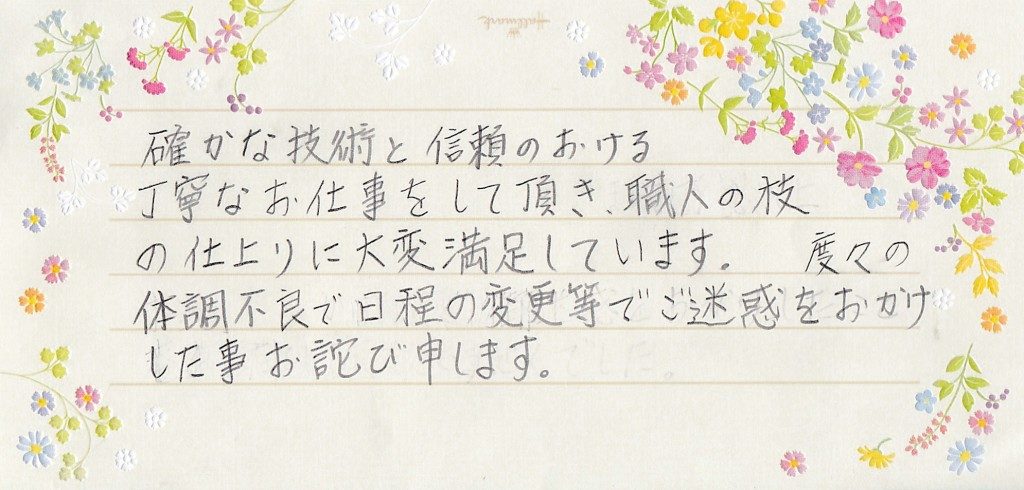 Hallmark
確かな技術と信頼のおける
丁寧なお仕事をして頂き、職人の技
の仕上りに大変満足しています。 度々の
体調不良で日程の変更等でご迷惑をおかけ
した事お詫び申します。